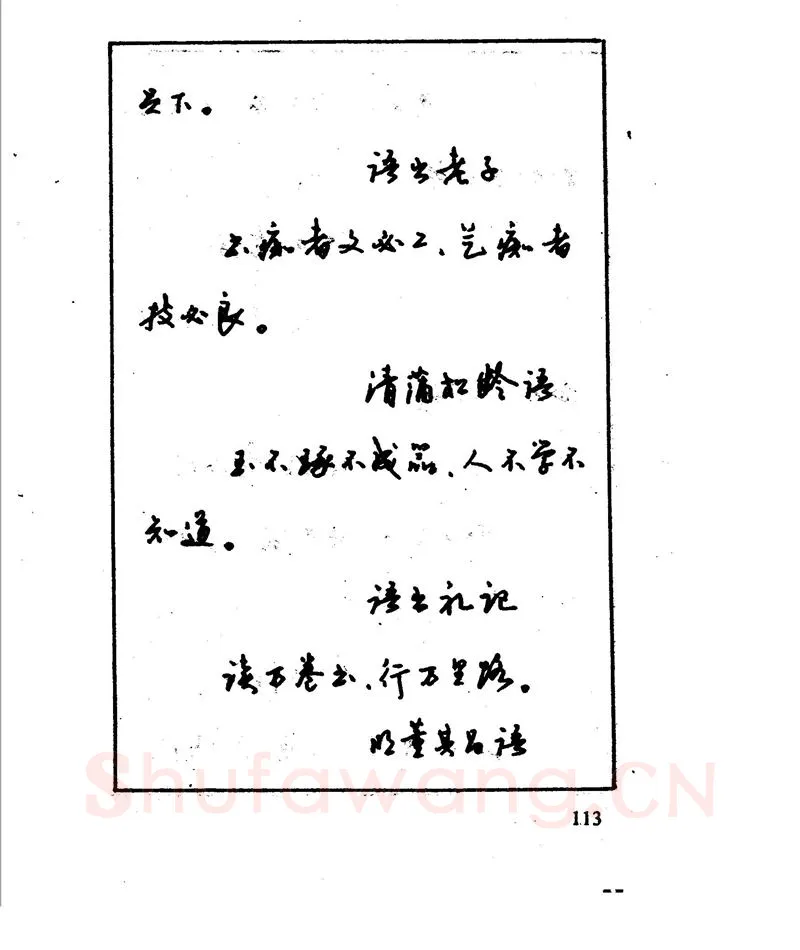 足下。
语出老子
书痴者文必工、艺痴者
技必良。
清蒲松龄语
玉不琢不成器、人不学不
知道。
语出礼记
读万卷书、行万里路。
明董其昌语
Shufawang.CN
113